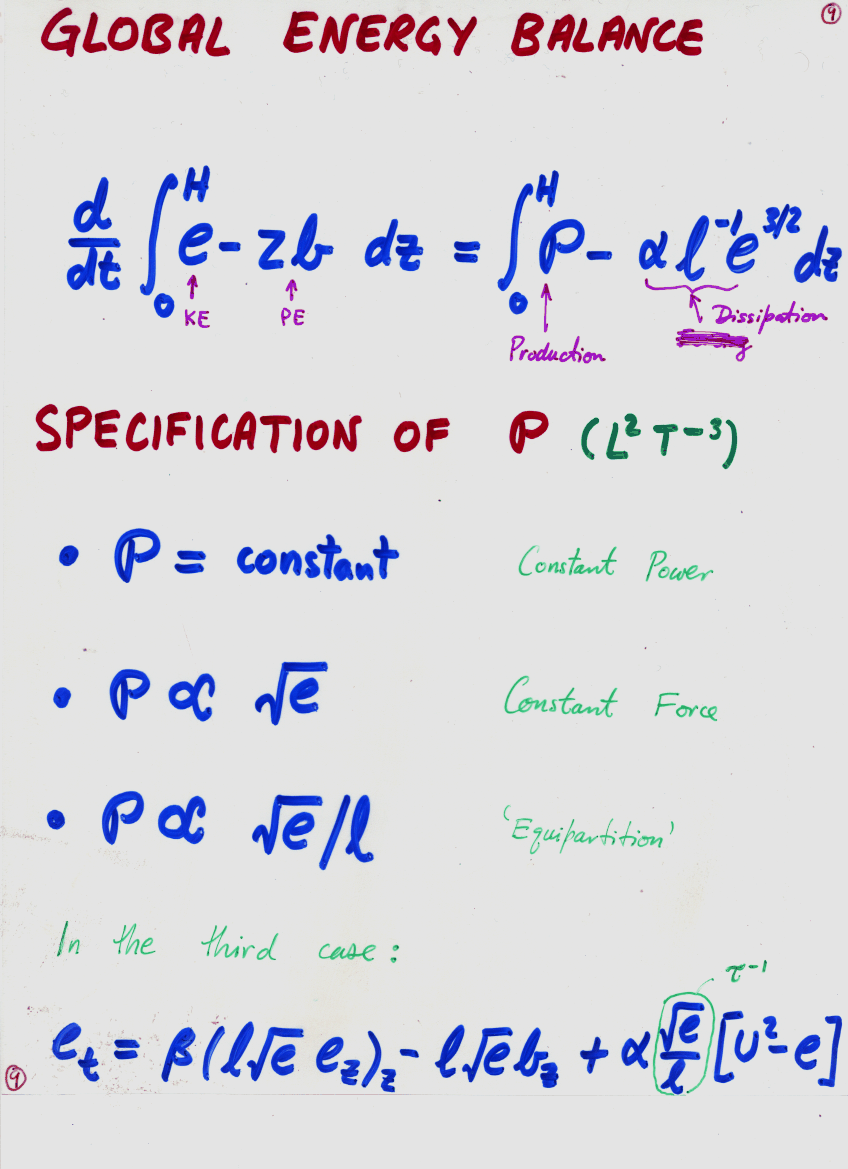 9
GLOBAL ENERGY BALANCE
d/dt ∫₀ᴴ e - zb dz = ∫₀ᴴ P - α l⁻¹ e³/² dz
KE PE
Production Dissipation
SPECIFICATION OF P (L² T⁻³)
• P = constant Constant Power
• P ∝ √e Constant Force
• P ∝ √e/l 'Equipartition'
In the third case:
τ⁻¹
eₜ = β(l√e e_z)_z - l√e b_z + α √e/l [U² - e]
9